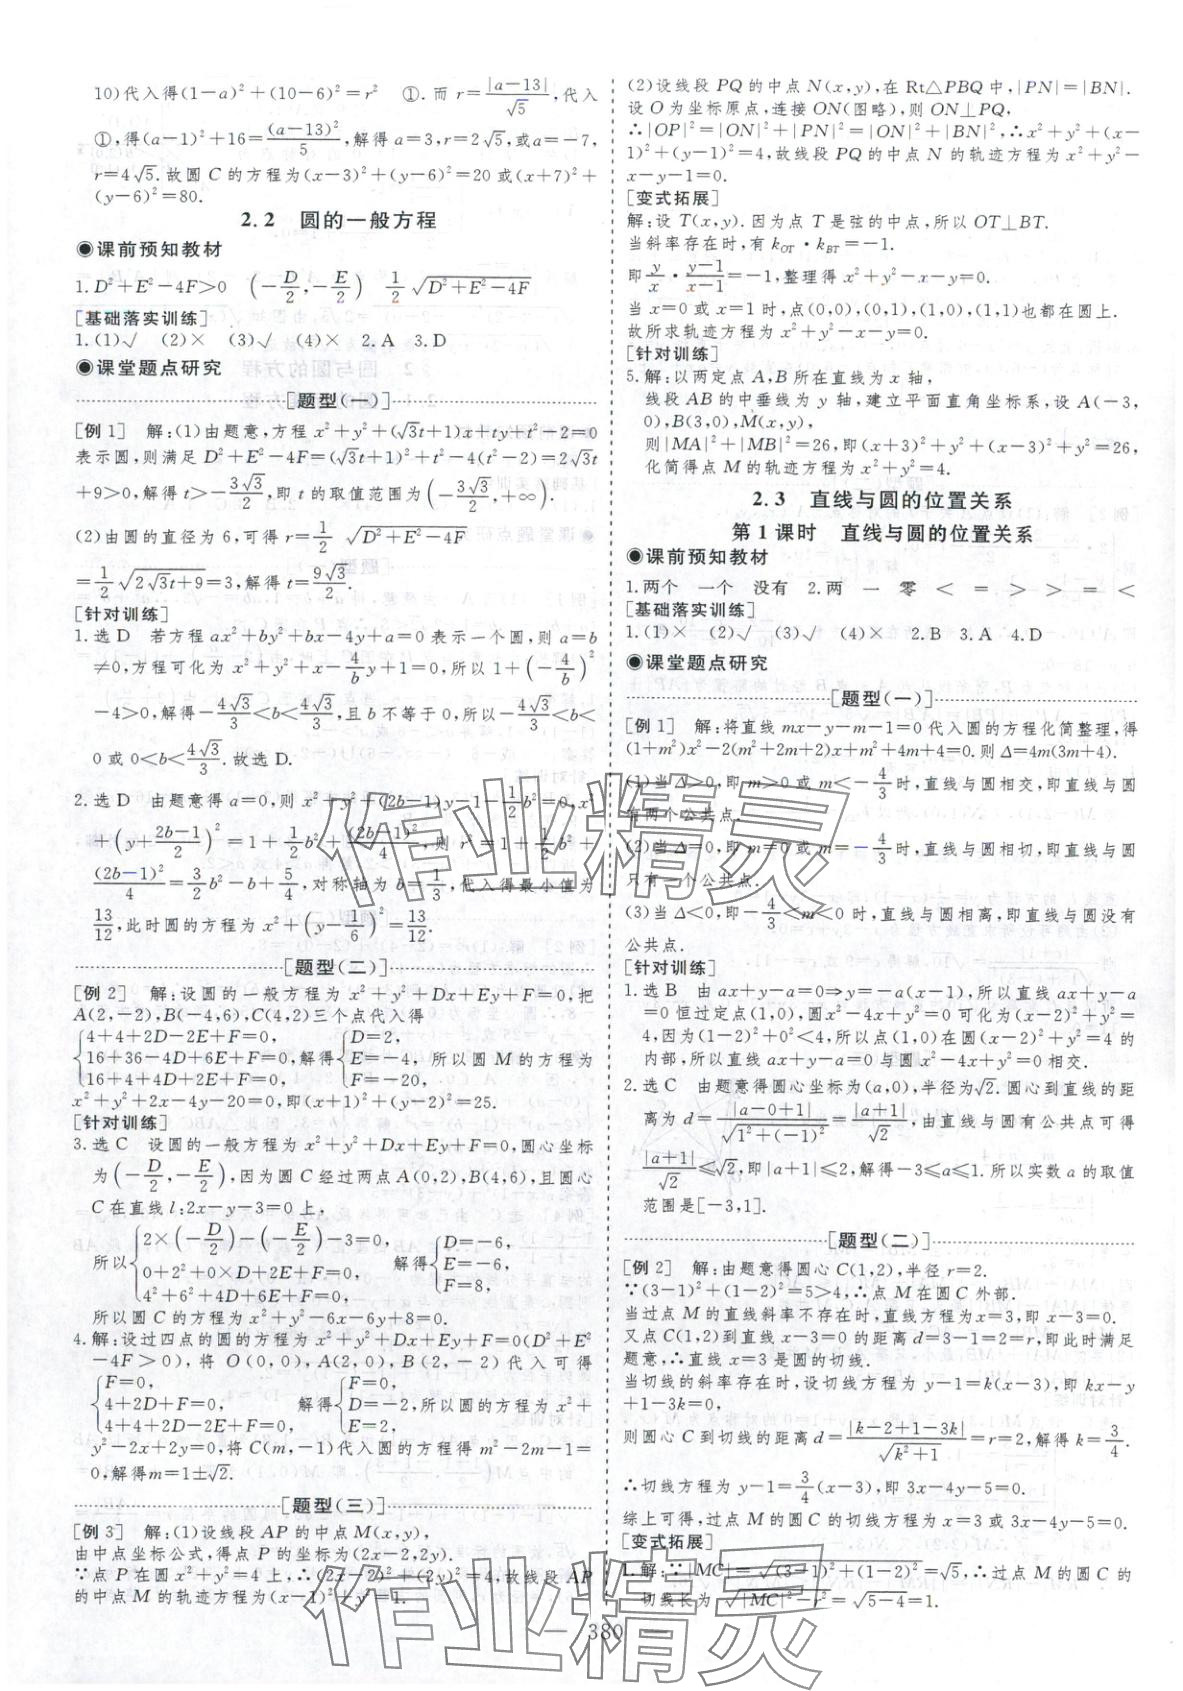 10)代入得(1-a)²+(10-6)²=r² ①.而 r=|a-13|/√5,代入
①,得(a-1)²+16=(a-13)²/5,解得 a=3,r=2√5,或a=-7,
r=4√5.故圆 C 的方程为(x-3)²+(y-6)²=20 或(x+7)²+
(y-6)²=80.
2.2 圆的一般方程
◉课前预知教材
1.D²+E²-4F>0 (-D/2,-E/2) 1/2 √(D²+E²-4F)
[基础落实训练]
1.(1)√ (2)× (3)√ (4)× 2.A 3.D
◉课堂题点研究
[题型(一)]
[例1] 解:(1)由题意,方程 x²+y²+(√3t+1)x+ty+t²-2=0
表示圆,则满足 D²+E²-4F=(√3t+1)²+t²-4(t²-2)=2√3t
+9>0,解得 t>-3√3/2,即 t 的取值范围为(-3√3/2,+∞).
(2)由圆的直径为 6,可得 r=1/2 √(D²+E²-4F)
=1/2 √(2√3t+9)=3,解得 t=9√3/2.
[针对训练]
1.选 D 若方程 ax²+by²+bx-4y+a=0 表示一个圆,则 a=b
≠0,方程可化为 x²+y²+x-4/b y+1=0,所以 1+(-4/b)²
-4>0,解得-4√3/3<b<4√3/3,且 b 不等于 0,所以-4√3/3<b<
0 或 0<b<4√3/3.故选 D.
2.选 D 由题意得 a=0,则 x²+y²+(2b-1)y-1-1/2 b²=0,x²
+(y+(2b-1)/2)²=1+1/2 b²+(2b-1)²/4,则 r²=1+1/2 b²+
(2b-1)²/4=3/2 b²-b+5/4,对称轴为 b=1/3,代入得最小值为
13/12,此时圆的方程为 x²+(y-1/6)²=13/12.
[题型(二)]
[例2] 解:设圆的一般方程为 x²+y²+Dx+Ey+F=0,把
A(2,-2),B(-4,6),C(4,2)三个点代入得
{4+4+2D-2E+F=0, {D=2,
16+36-4D+6E+F=0,解得 E=-4, 所以圆 M 的方程为
16+4+4D+2E+F=0, F=-20,
x²+y²+2x-4y-20=0,即(x+1)²+(y-2)²=25.
[针对训练]
3.选 C 设圆的一般方程为 x²+y²+Dx+Ey+F=0,圆心坐标
为(-D/2,-E/2),因为圆 C 经过两点 A(0,2),B(4,6),且圆心
C 在直线 l:2x-y-3=0 上,
{2×(-D/2)-(-E/2)-3=0, {D=-6,
所以 0+2²+0×D+2E+F=0, 解得 E=-6,
4²+6²+4D+6E+F=0, F=8,
所以圆 C 的方程为 x²+y²-6x-6y+8=0.
4.解:设过四点的圆的方程为 x²+y²+Dx+Ey+F=0(D²+E²
-4F>0),将 O(0,0),A(2,0),B(2,-2)代入可得
{F=0, {F=0,
4+2D+F=0, 解得 D=-2, 所以圆的方程为 x²+
4+4+2D-2E+F=0, E=2,
y²-2x+2y=0,将 C(m,-1)代入圆的方程得 m²-2m-1=
0,解得m=1±√2.
[题型(三)]
[例3] 解:(1)设线段 AP 的中点 M(x,y),
由中点坐标公式,得点 P 的坐标为(2x-2,2y).
∵点 P 在圆 x²+y²=4 上,∴(2x-2)²+(2y)²=4,故线段 AP
的中点 M 的轨迹方程为(x-1)²+y²=1.
(2)设线段 PQ 的中点 N(x,y),在 Rt△PBQ 中,|PN|=|BN|.
设 O 为坐标原点,连接 ON(图略),则 ON⊥PQ,
∴|OP|²=|ON|²+|PN|²=|ON|²+|BN|²,∴x²+y²+(x-
1)²+(y-1)²=4,故线段 PQ 的中点 N 的轨迹方程为 x²+y²
-x-y-1=0.
[变式拓展]
解:设 T(x,y).因为点 T 是弦的中点,所以 OT⊥BT.
当斜率存在时,有 k_OT·k_BT=-1.
即 y/x·(y-1)/(x-1)=-1,整理得 x²+y²-x-y=0.
当 x=0 或 x=1 时,点(0,0),(0,1),(1,0),(1,1)也都在圆上.
故所求轨迹方程为 x²+y²-x-y=0.
[针对训练]
5.解:以两定点 A,B 所在直线为 x 轴,
线段 AB 的中垂线为 y 轴,建立平面直角坐标系,设 A(-3,
0),B(3,0),M(x,y),
则|MA|²+|MB|²=26,即(x+3)²+y²+(x-3)²+y²=26,
化简得点 M 的轨迹方程为 x²+y²=4.
2.3 直线与圆的位置关系
第1课时 直线与圆的位置关系
◉课前预知教材
1.两个 一个 没有 2.两 一 零 < = > > = <
[基础落实训练]
1.(1)× (2)√ (3)√ (4)× 2.B 3.A 4.D
◉课堂题点研究
[题型(一)]
[例1] 解:将直线 mx-y-m-1=0代入圆的方程化简整理,得
(1+m²)x²-2(m²+2m+2)x+m²+4m+4=0.则 Δ=4m(3m+4).
(1)当 Δ>0,即 m>0 或 m<-4/3时,直线与圆相交,即直线与圆
有两个公共点.
(2)当 Δ=0,即 m=0 或 m=-4/3时,直线与圆相切,即直线与圆
只有一个公共点.
(3)当 Δ<0,即-4/3<m<0 时,直线与圆相离,即直线与圆没有
公共点.
[针对训练]
1.选 B 由 ax+y-a=0⇒y=-a(x-1),所以直线 ax+y-a
=0 恒过定点(1,0),圆 x²-4x+y²=0 可化为(x-2)²+y²=
4,因为(1-2)²+0²<4,所以点(1,0)在圆(x-2)²+y²=4 的
内部,所以直线 ax+y-a=0 与圆 x²-4x+y²=0 相交.
2.选 C 由题意得圆心坐标为(a,0),半径为√2.圆心到直线的距
离为 d=|a-0+1|/√(1²+(-1)²)=|a+1|/√2,直线与圆有公共点可得
|a+1|/√2≤√2,即|a+1|≤2,解得-3≤a≤1.所以实数 a 的取值
范围是[-3,1].
[题型(二)]
[例2] 解:由题意得圆心 C(1,2),半径 r=2.
∵(3-1)²+(1-2)²=5>4,∴点 M 在圆 C 外部.
当过点 M 的直线斜率不存在时,直线方程为 x=3,即 x-3=0.
又点 C(1,2)到直线 x-3=0 的距离 d=3-1=2=r,即此时满足
题意,∴直线 x=3 是圆的切线.
当切线的斜率存在时,设切线方程为 y-1=k(x-3),即 kx-y
+1-3k=0,
则圆心 C 到切线的距离 d=|k-2+1-3k|/√(k²+1)=r=2,解得 k=3/4.
∴切线方程为 y-1=3/4(x-3),即 3x-4y-5=0.
综上可得,过点 M 的圆 C 的切线方程为 x=3 或 3x-4y-5=0.
[变式拓展]
1.解:∵|MC|=√((3-1)²+(1-2)²)=√5,∴过点 M 的圆 C 的
切线长为 √(|MC|²-r²)=√(5-4)=1.
380
作业精灵
作业精灵